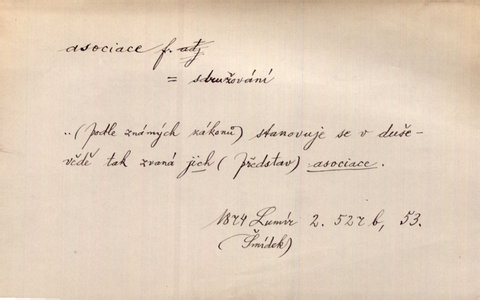 asociace f. adj
= sdružování
..(podle známých zákonů) stanovuje se v duše-
vědě tak zvaná jich (představ) asociace.
1874 Lumír 2. 527 b, 53.
(Šmídek)